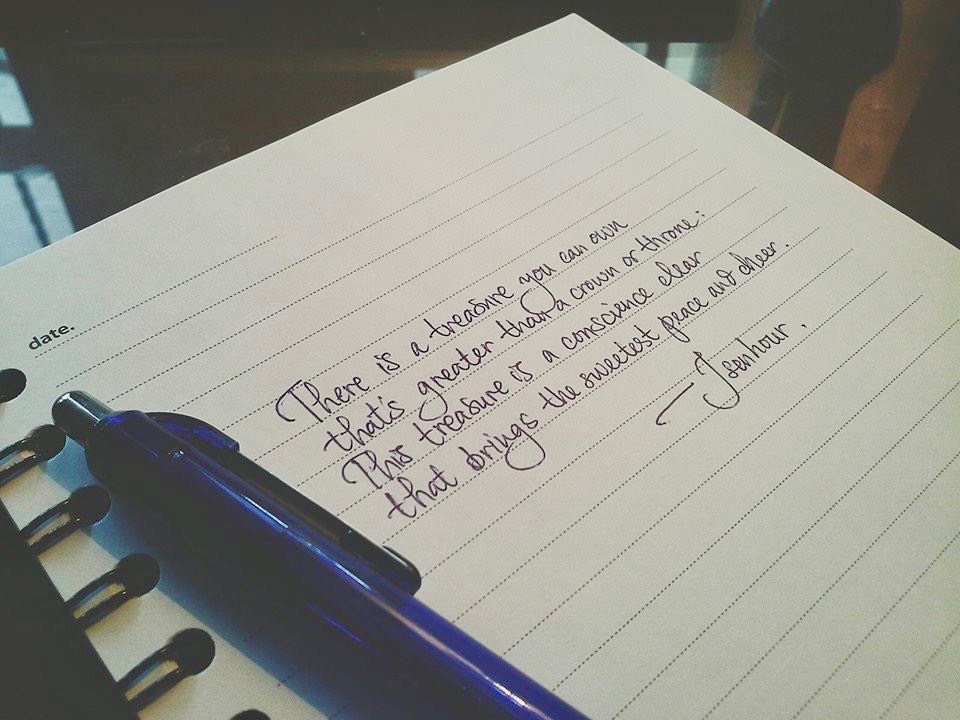 date.
There is a treasure you can own
that's greater than a crown or throne:
This treasure is a conscience clear
that brings the sweetest peace and cheer.
— Isenhour.